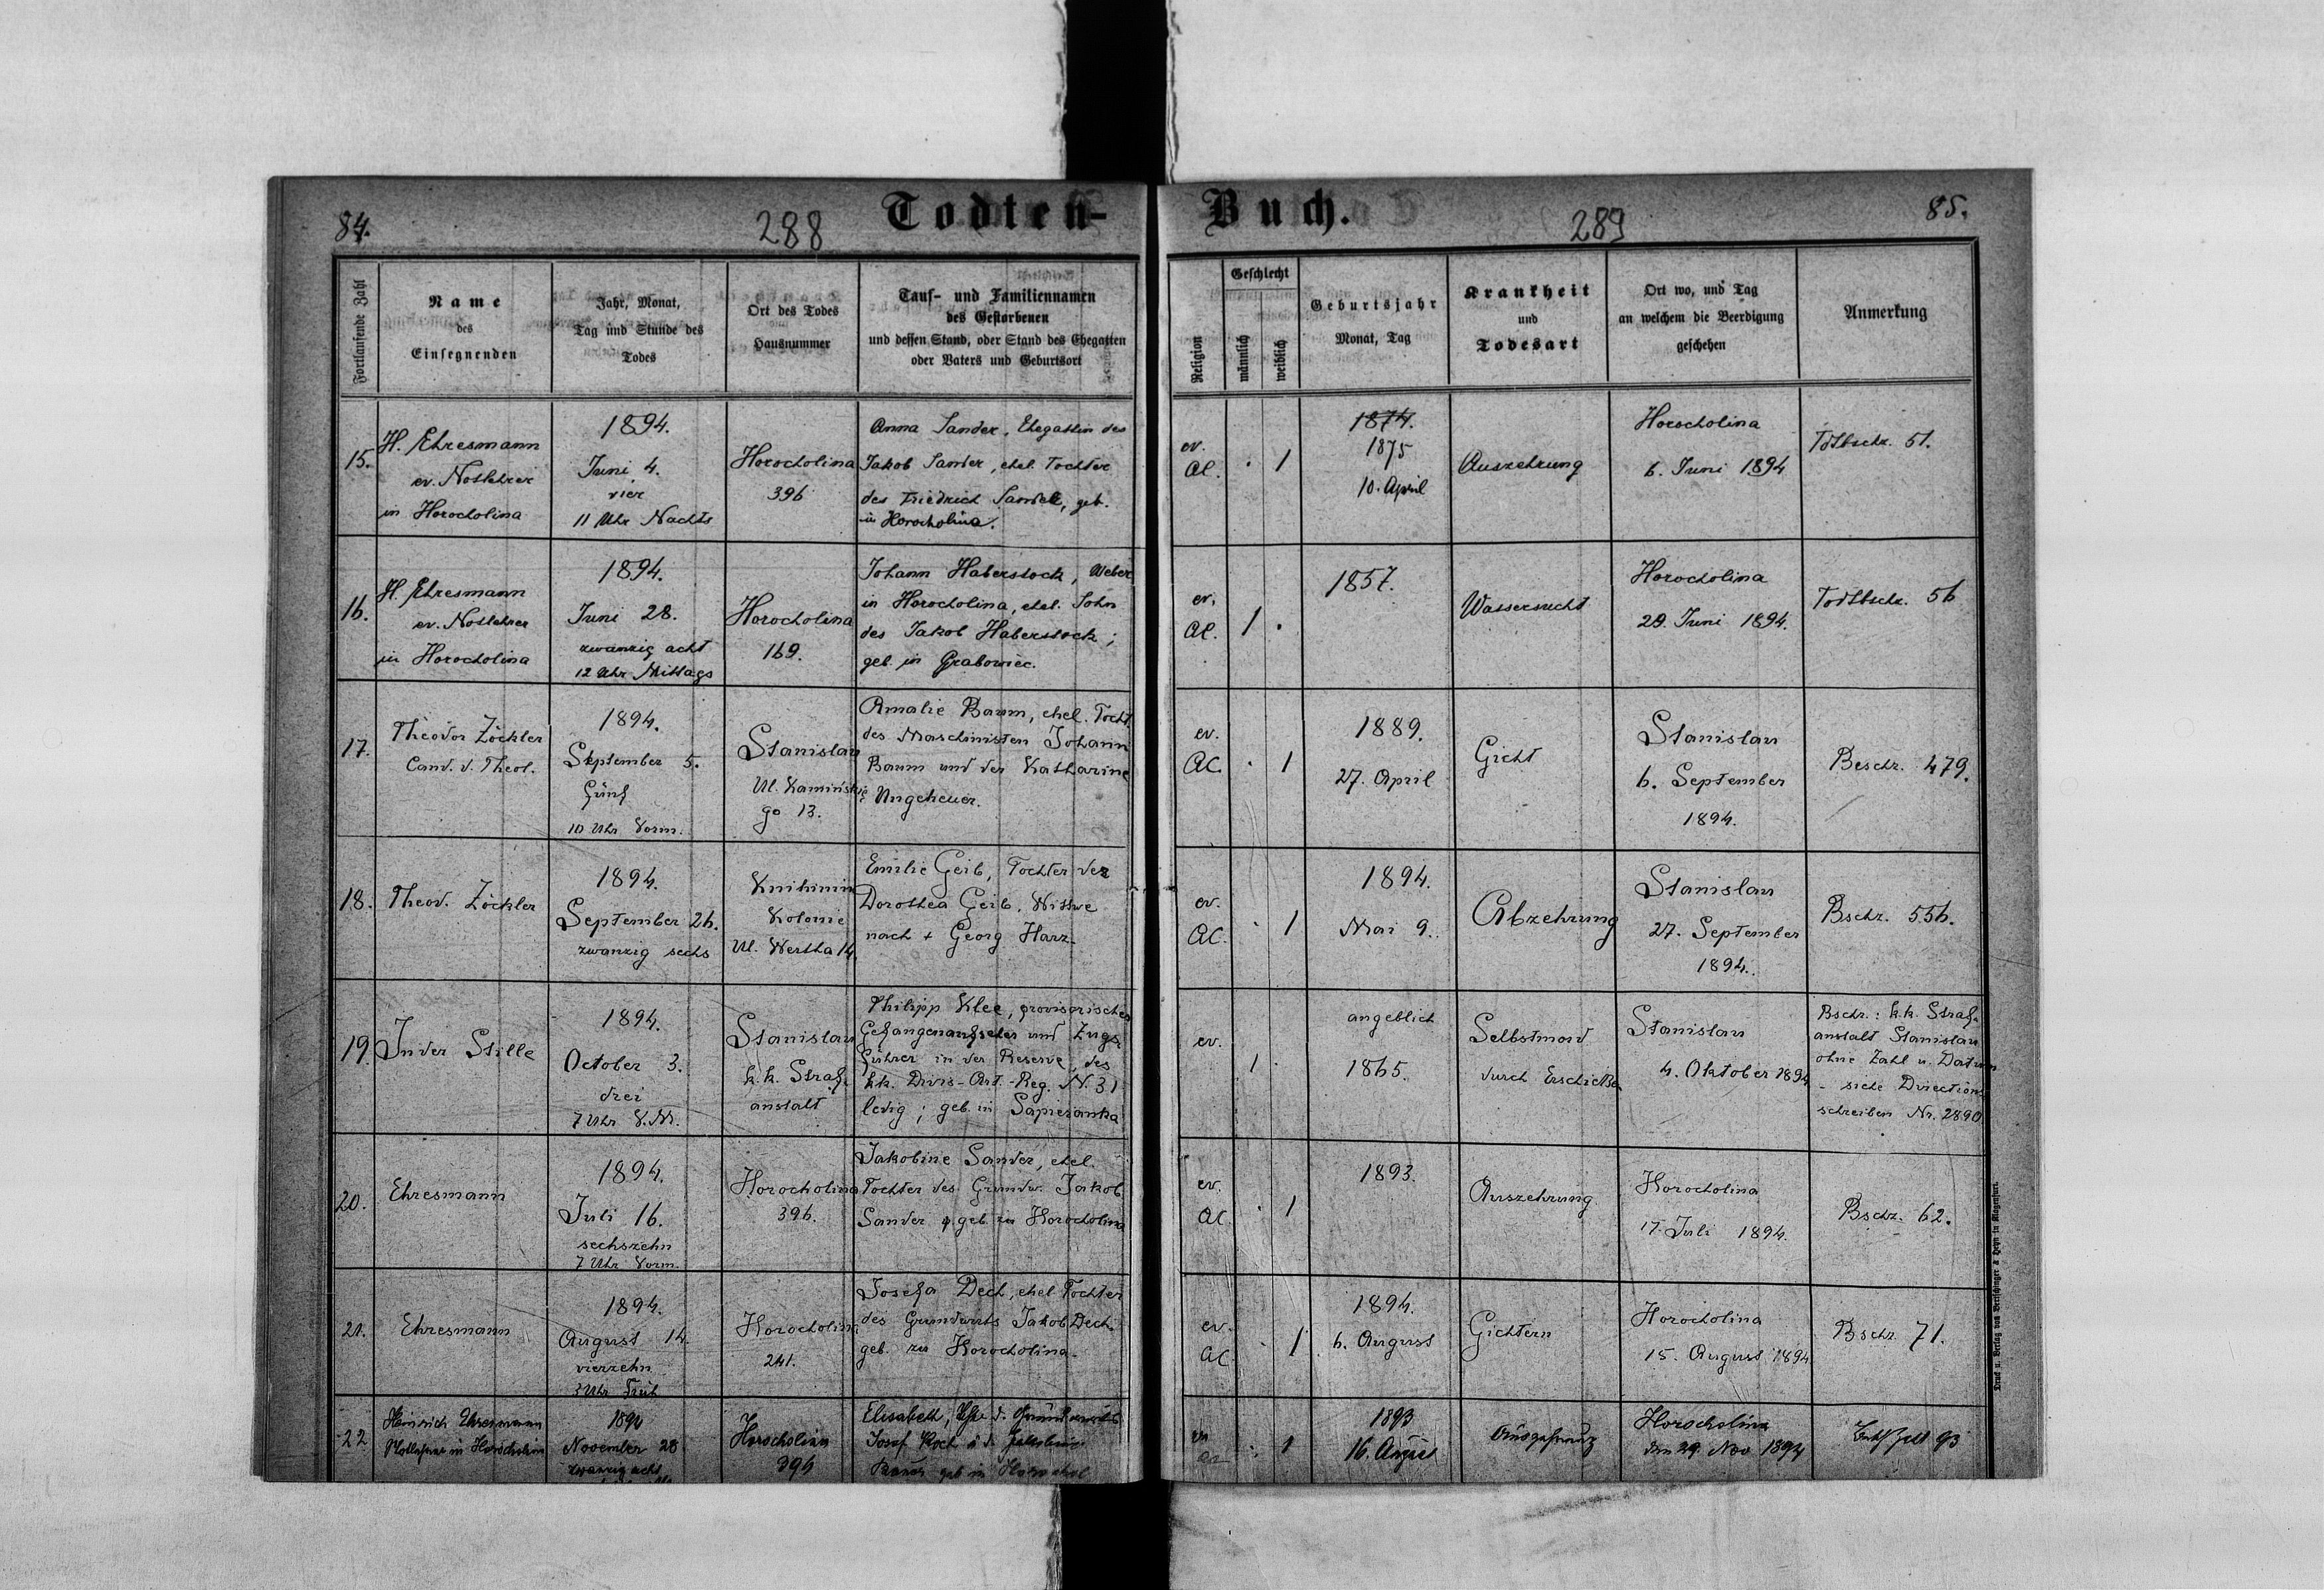 84.
288
Todten-
Buch.
289
85.
Fortlaufende Zahl
Name
des
Einsegnenden
Jahr, Monat,
Tag und Stunde des
Todes
Ort des Todes
und
Hausnummer
Tauf- und Familiennamen
des Gestorbenen
und dessen Stand, oder Stand des Ehegatten
oder Vaters und Geburtsort
Religion
Geschlecht
männlich
weiblich
Geburtsjahr
Monat, Tag
Krankheit
und
Todesart
Ort wo, und Tag
an welchem die Beerdigung
geschehen
Anmerkung
15.
H. Ehresmann
ev. Notlehrer
in Horocholina
1894.
Juni 4.
vier
11 Uhr Nachts
Horocholina
396
Anna Sander, Ehegattin des
Jakob Sander, ehel. Tochter
des Friedrich , geb.
in Horocholina.
ev.
AC.
1
1874.
1875
10. April
Auszehrung
Horocholina
6. Juni 1894
Todtbschr. 51.
16.
H. Ehresmann
ev. Notlehrer
in Horocholina
1894.
Juni 28.
zwanzig acht
12 Uhr Mittags
Horocholina
169.
Johann Haberstock, Weber
in Horocholina, ehel. Sohn
des Jakob Haberstock;
geb. in Grabowiec.
ev.
AC.
1
1857.
Wassersucht
Horocholina
29. Juni 1894.
Todtbschr. 56
17.
Theodor Zöckler
Cand. d. Theol.
1894.
September 5.
fünf
10 Uhr Vorm.
Stanislau
Ul. Kamińskie-
go 13.
Amalie Baum, ehel. Tocht.
des Maschinisten Johann
Baum und der Katharine
Ungeheuer.
ev.
AC.
1
1889.
27. April
Gicht
Stanislau
6. September
1894.
Beschr. 479.
18.
Theod. Zöckler
1894.
September 26.
zwanzig sechs
Knihinin
Kolonie
Ul. Wertha 14.
Emilie Geib, Tochter der
Dorothea Geib, Wittwe
nach + Georg Harz.
ev.
AC.
1
1894.
Mai 9.
Abzehrung
Stanislau
27. September
1894.
Bschr. 556.
19.
In der Stille
1894.
October 3.
drei
7 Uhr V.M.
Stanislau
k.k. Straf-
anstalt
Philipp Klee, provisorischer
Gefangenaufseher und Zugs-
führer in der Reserve des
kk. Divis-Art.-Reg. N. 31
ledig; geb. in Sapiezanka
ev.
1
angeblich
1865.
Selbstmord
durch Erschießen
Stanislau
4. Oktober 1894
Bschr.: k.k. Straf-
anstalt Stanislau
ohne Zahl u. Datum
- siehe Directions-
schreiben Nr. 2890
20.
Ehresmann
1894.
Juli 16.
sechszehn
7 Uhr Vorm.
Horocholina
396.
Jakobine Sander, ehel.
Tochter des Grundw. Jakob
Sander geb. zu Horocholina
ev.
AC
1
1893.
Auszehrung
Horocholina
17. Juli 1894.
Bschr. 62.
21.
Ehresmann
1894.
August 14.
vierzehn
3 Uhr Früh
Horocholina
241.
Josefa Dech, ehel Tochter
des Grundwirts Jakob Dech.
geb. zu Horocholina.
ev.
AC.
1
1894.
6. August
Gichtern
Horocholina
15. August 1894
Bschr. 71.
22
Heinrich Ehresmann
in Horocholina
1894
November 28
zwanzig acht
Horocholina
396
Elisabeth,
Josef Koch
geb in
1
1893
16. August
Horocholina
den 29. Nov 1894
93
Druck u. Verlag von Bertschinger & Heyn in Klagenfurt.